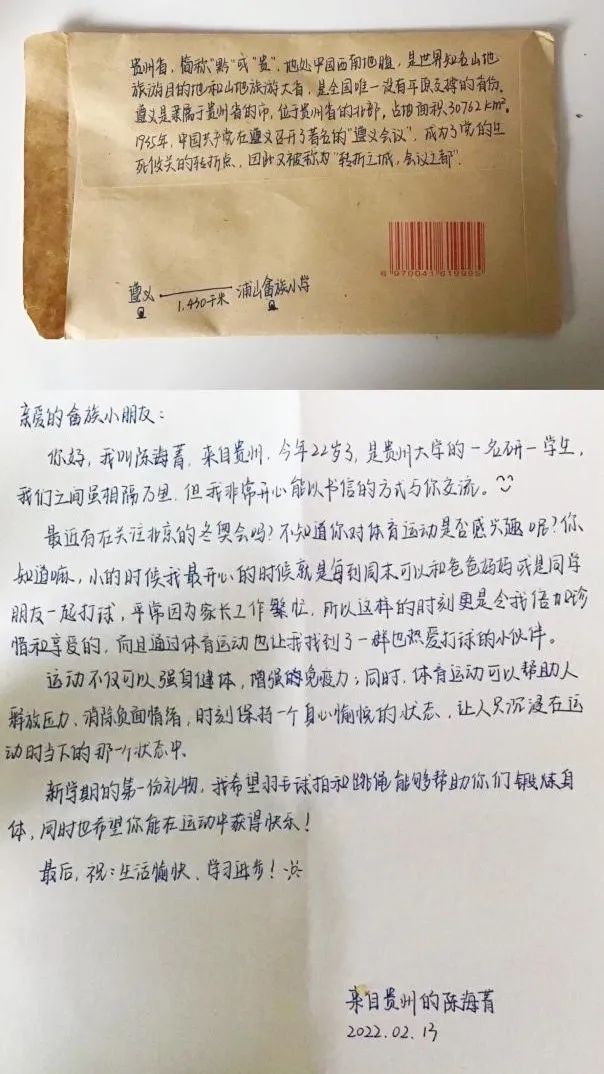 贵州省，简称"黔"或"贵"，地处中国西南地腹，是世界知名山地
旅游目的地和山地旅游大省，是全国唯一没有平原支撑的省份。
遵义是隶属于贵州省的市，位于贵州省的北部，占地面积30762km².
1935年，中国共产党在遵义召开了著名的"遵义会议"，成为了党的生
死攸关的转折点，因此又被称为"转折之城，会议之都".
6 970041 619995
遵义 1,430千米 浦山畲族小学
亲爱的畲族小朋友：
你好，我叫陈海菁，来自贵州，今年22岁了，是贵州大学的一名研一学生，
我们之间虽相隔万里，但我非常开心能以书信的方式与你交流。
最近有在关注北京的冬奥会吗？不知道你对体育运动是否感兴趣呢？你
知道嘛，小的时候我最开心的时候就是每到周末可以和爸爸妈妈或是同学
朋友一起打球，平常因为家长工作繁忙，所以这样的时刻更是令我倍加珍
惜和享受的，而且通过体育运动也让我找到了一群也热爱打球的小伙伴。
运动不仅可以强身健体，增强免疫力；同时，体育运动可以帮助人
释放压力、消除负面情绪，时刻保持一个身心愉悦的状态，让人只沉浸在运
动时当下的那一个状态中。
新学期的第一份礼物，我希望羽毛球拍和跳绳能够帮助你们锻炼身
体，同时也希望你能在运动中获得快乐！
最后，祝：生活愉快、学习进步！
来自贵州的陈海菁
2022.02.13